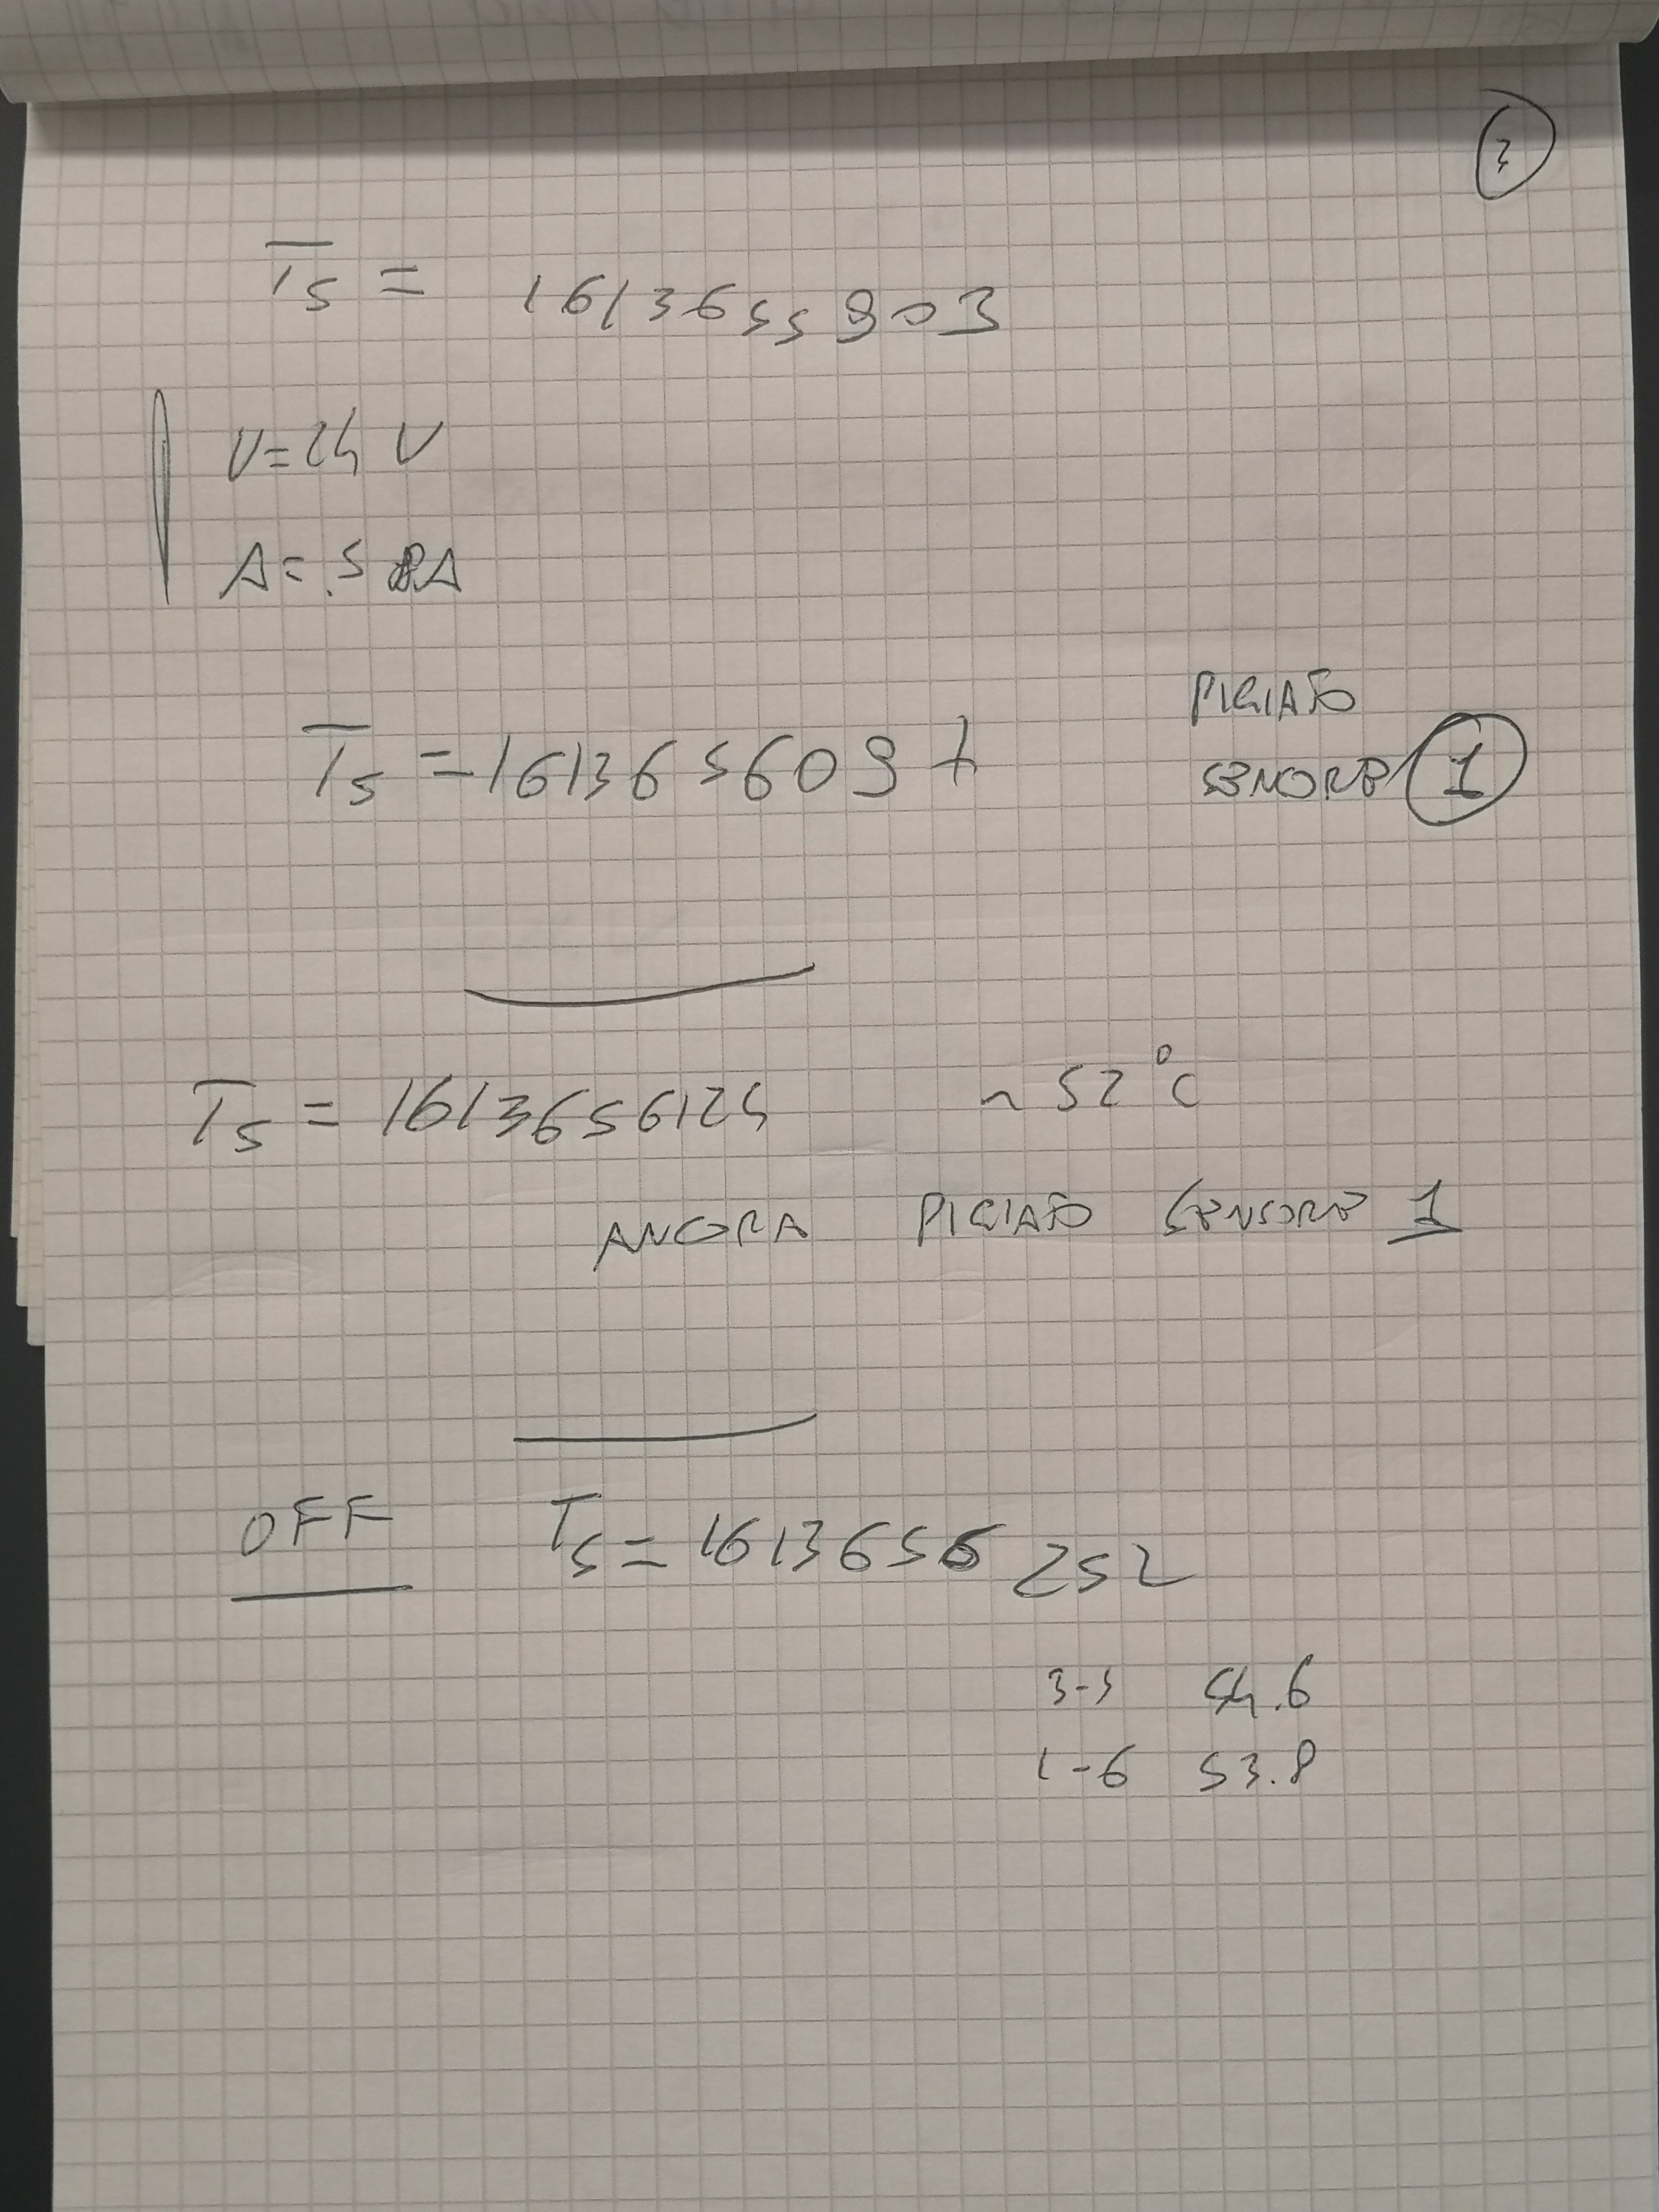 3
Ts = 1613655903
V=24 V
A=.5 A
PIGIATO
Ts = 1613656097
SENORE 1
Ts = 1613656124 ~ 52°C
ANCORA PIGIATO SENSORE 1
OFF Ts = 1613656252
3-5 54.6
1-6 53.8